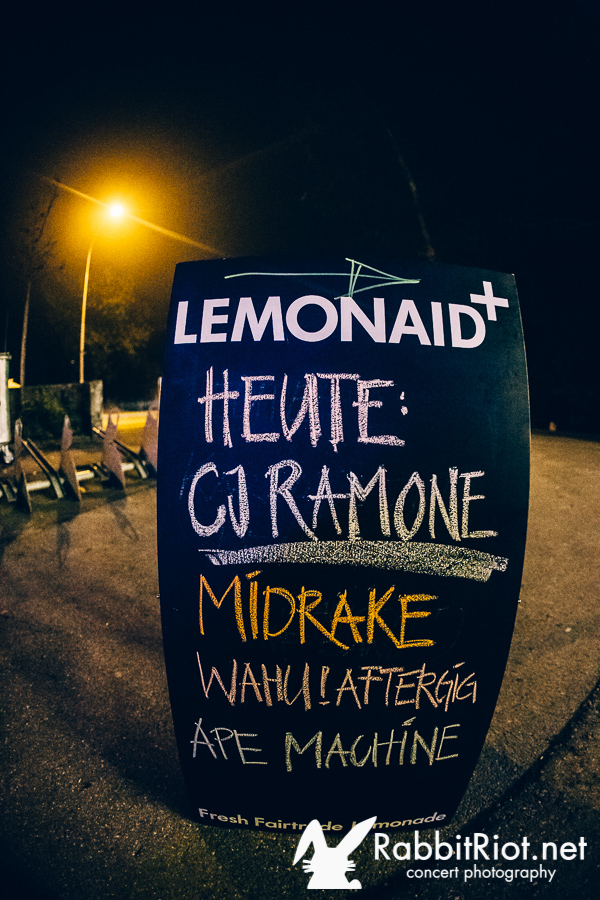 LEMONAID+
HEUTE:
CJ RAMONE
MIDRAKE
WAHU! AFTERGIG
APE MACHINE
Fresh Fairtrade Lemonade
RabbitRiot.net
concert photography